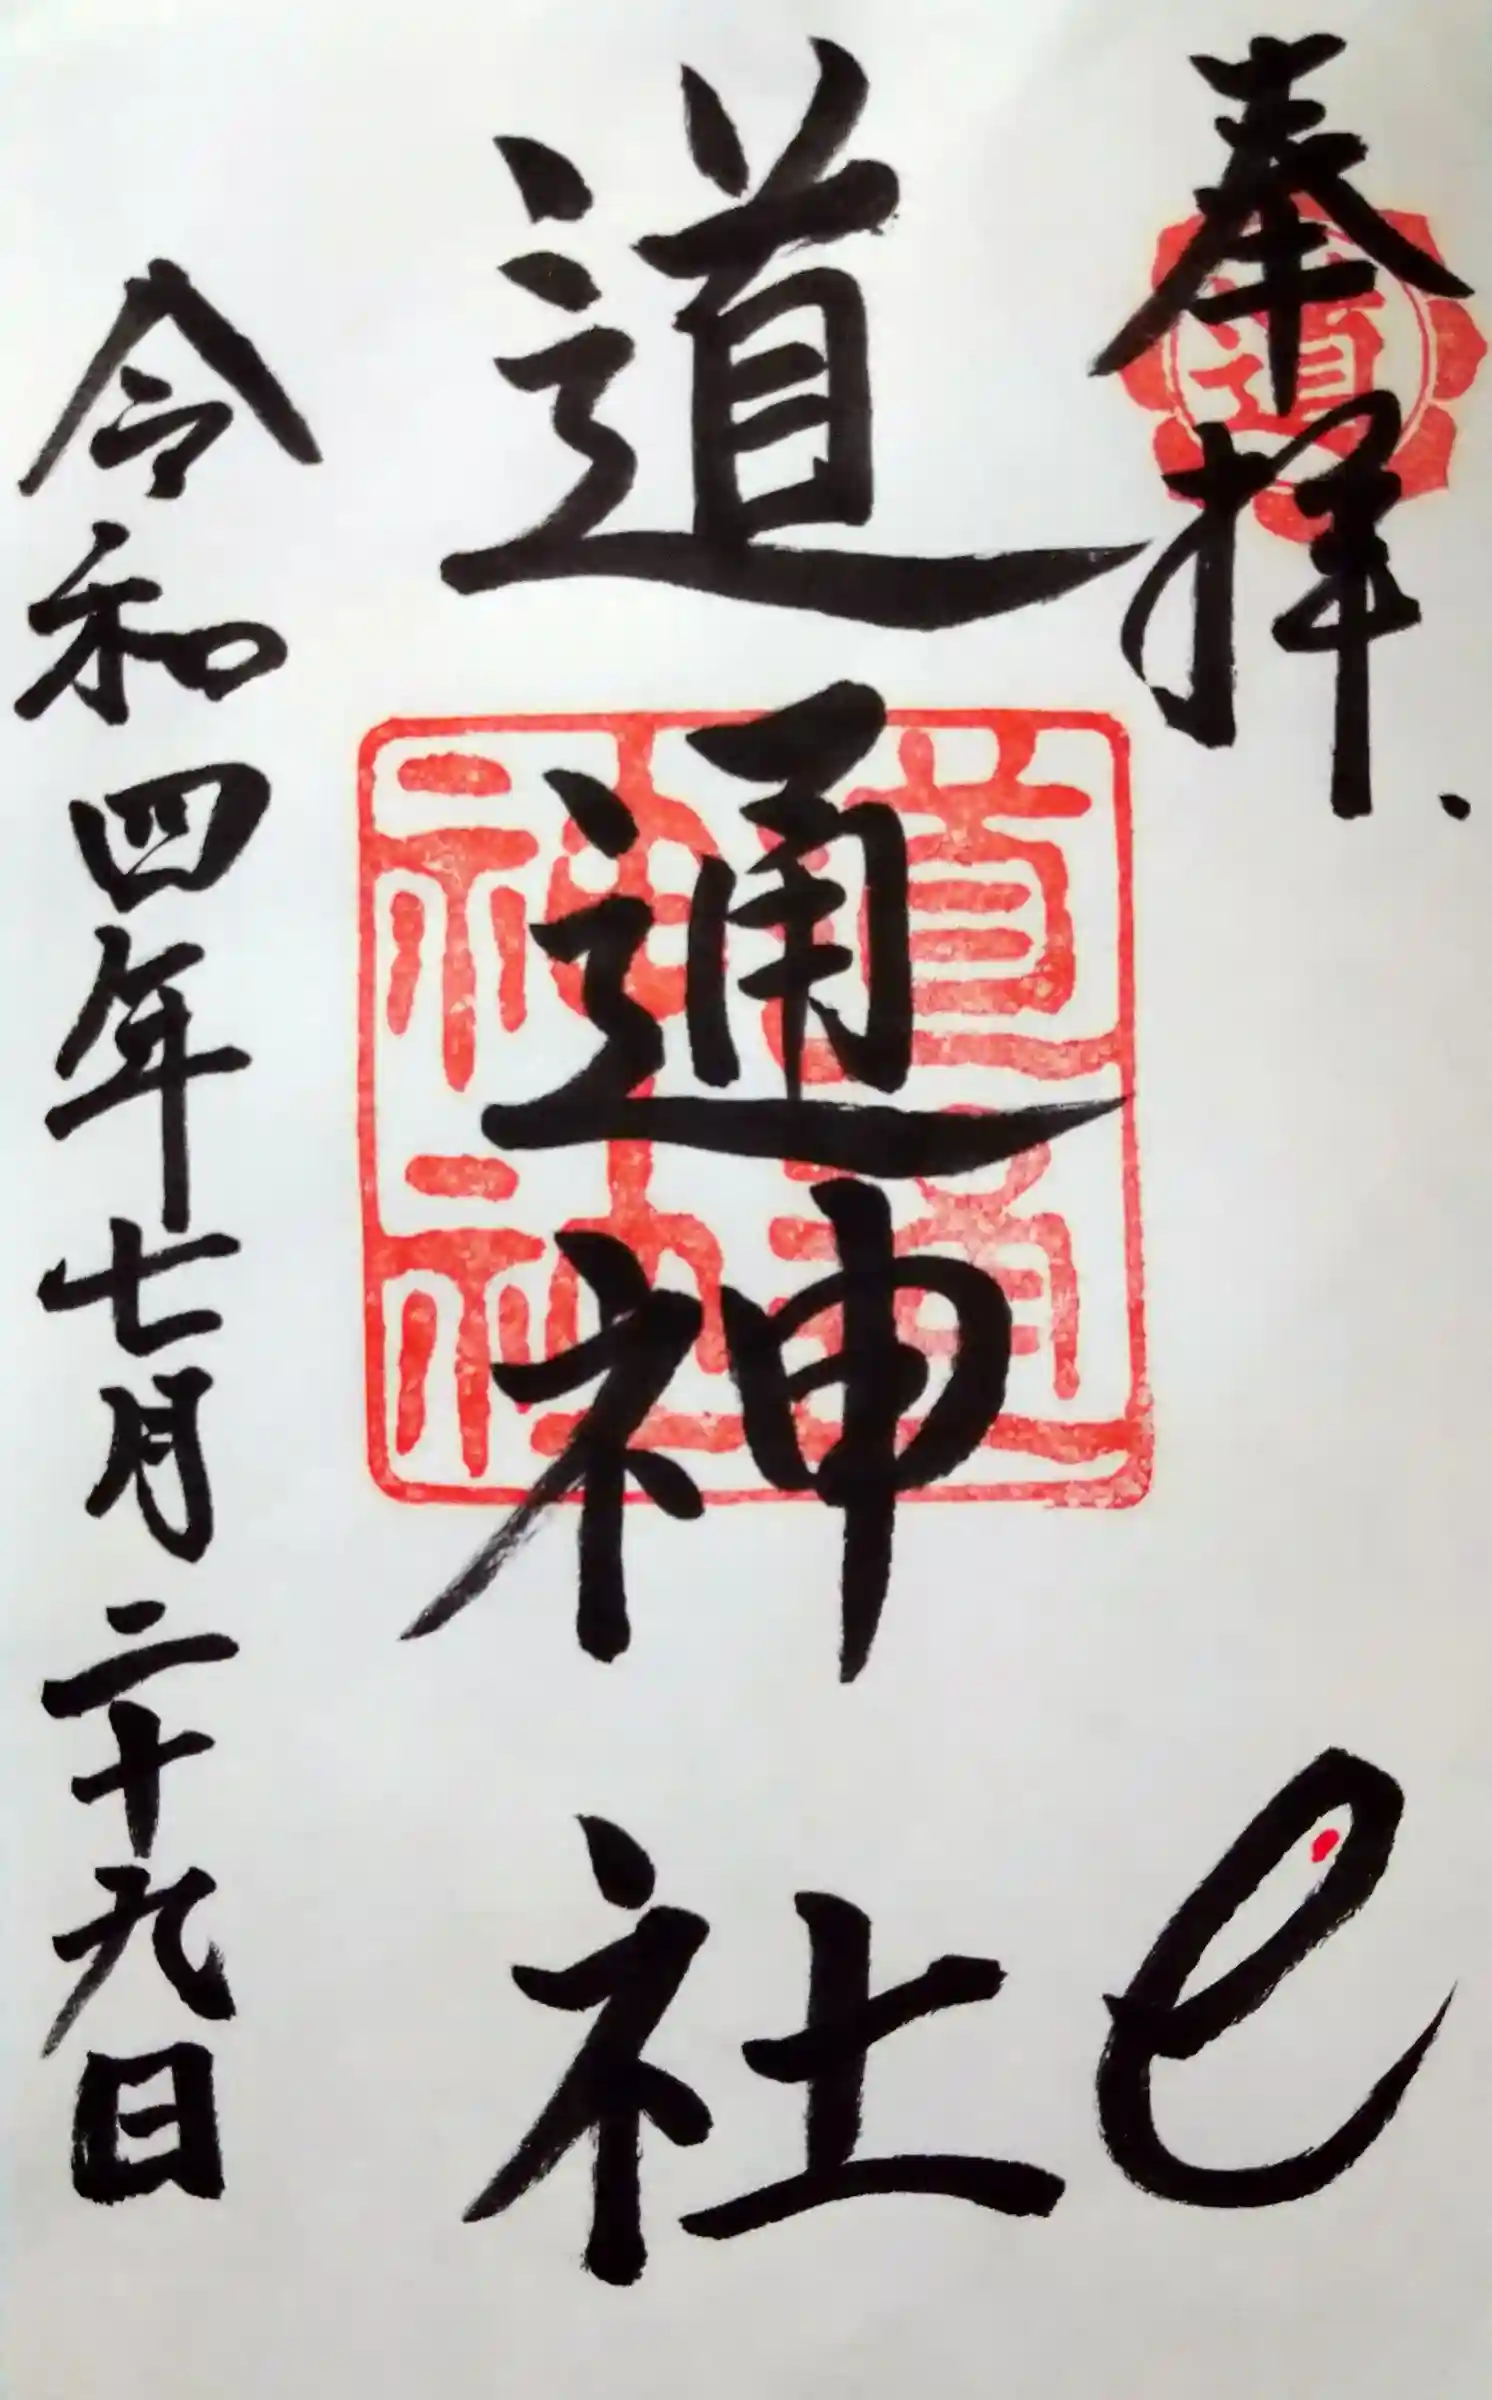 奉拝
道通神社
令和四年七月二十九日
道
道通
神社